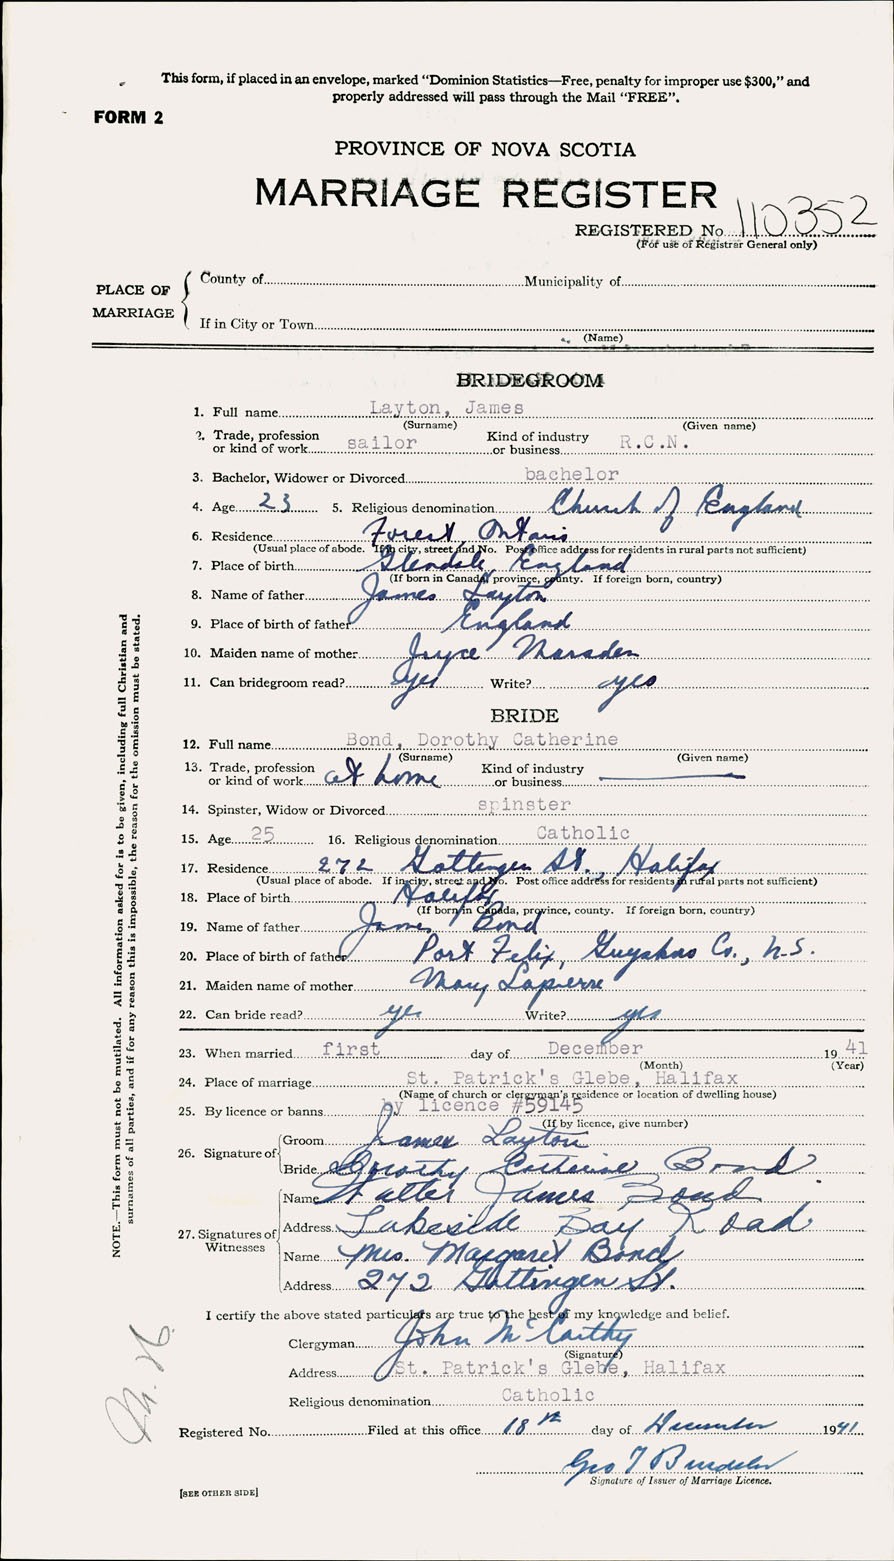 This form, if placed in an envelope, marked “Dominion Statistics—Free, penalty for improper use $300,” and
properly addressed will pass through the Mail “FREE”.
FORM 2
PROVINCE OF NOVA SCOTIA
MARRIAGE REGISTER
REGISTERED No. 110352
(For use of Registrar General only)
PLACE OF MARRIAGE
County of Municipality of
If in City or Town
(Name)
BRIDEGROOM
1. Full name Layton, James
(Surname) (Given name)
2. Trade, profession or kind of work sailor Kind of industry or business R.C.N.
3. Bachelor, Widower or Divorced bachelor
4. Age 23 5. Religious denomination Church of England
6. Residence Forest, Ontario
(Usual place of abode. If in city, street and No. Post office address for residents in rural parts not sufficient)
7. Place of birth Glendale, England
(If born in Canada, province, county. If foreign born, country)
8. Name of father James Layton
9. Place of birth of father England
10. Maiden name of mother Joyce Marsden
11. Can bridegroom read? yes Write? yes
BRIDE
12. Full name Bond, Dorothy Catherine
(Surname) (Given name)
13. Trade, profession or kind of work at home Kind of industry or business
14. Spinster, Widow or Divorced spinster
15. Age 25 16. Religious denomination Catholic
17. Residence 272 Gottingen St., Halifax
(Usual place of abode. If in city, street and No. Post office address for residents in rural parts not sufficient)
18. Place of birth Halifax
(If born in Canada, province, county. If foreign born, country)
19. Name of father James Bond
20. Place of birth of father Port Felix, Guysboro Co., N.S.
21. Maiden name of mother Mary Lapierre
22. Can bride read? yes Write? yes
23. When married first day of December 1941
(Month) (Year)
24. Place of marriage St. Patrick's Glebe, Halifax
(Name of church or clergyman's residence or location of dwelling house)
25. By licence or banns by licence #59145
(If by licence, give number)
26. Signature of Groom James Layton
Bride Dorothy Catherine Bond
27. Signatures of Witnesses
Name Walter James Bond
Address Lakeside Bay Road
Name Mrs. Margaret Bond
Address 272 Gottingen St.
I certify the above stated particulars are true to the best of my knowledge and belief.
Clergyman John McCarthy
(Signature)
Address St. Patrick's Glebe, Halifax
Religious denomination Catholic
Registered No. Filed at this office 18th day of December 1941
Geo T
Signature of Issuer of Marriage Licence.
[SEE OTHER SIDE]
NOTE.—This form must not be mutilated. All information asked for is to be given, including full Christian and
surnames of all parties, and if for any reason this is impossible, the reason for the omission must be stated.